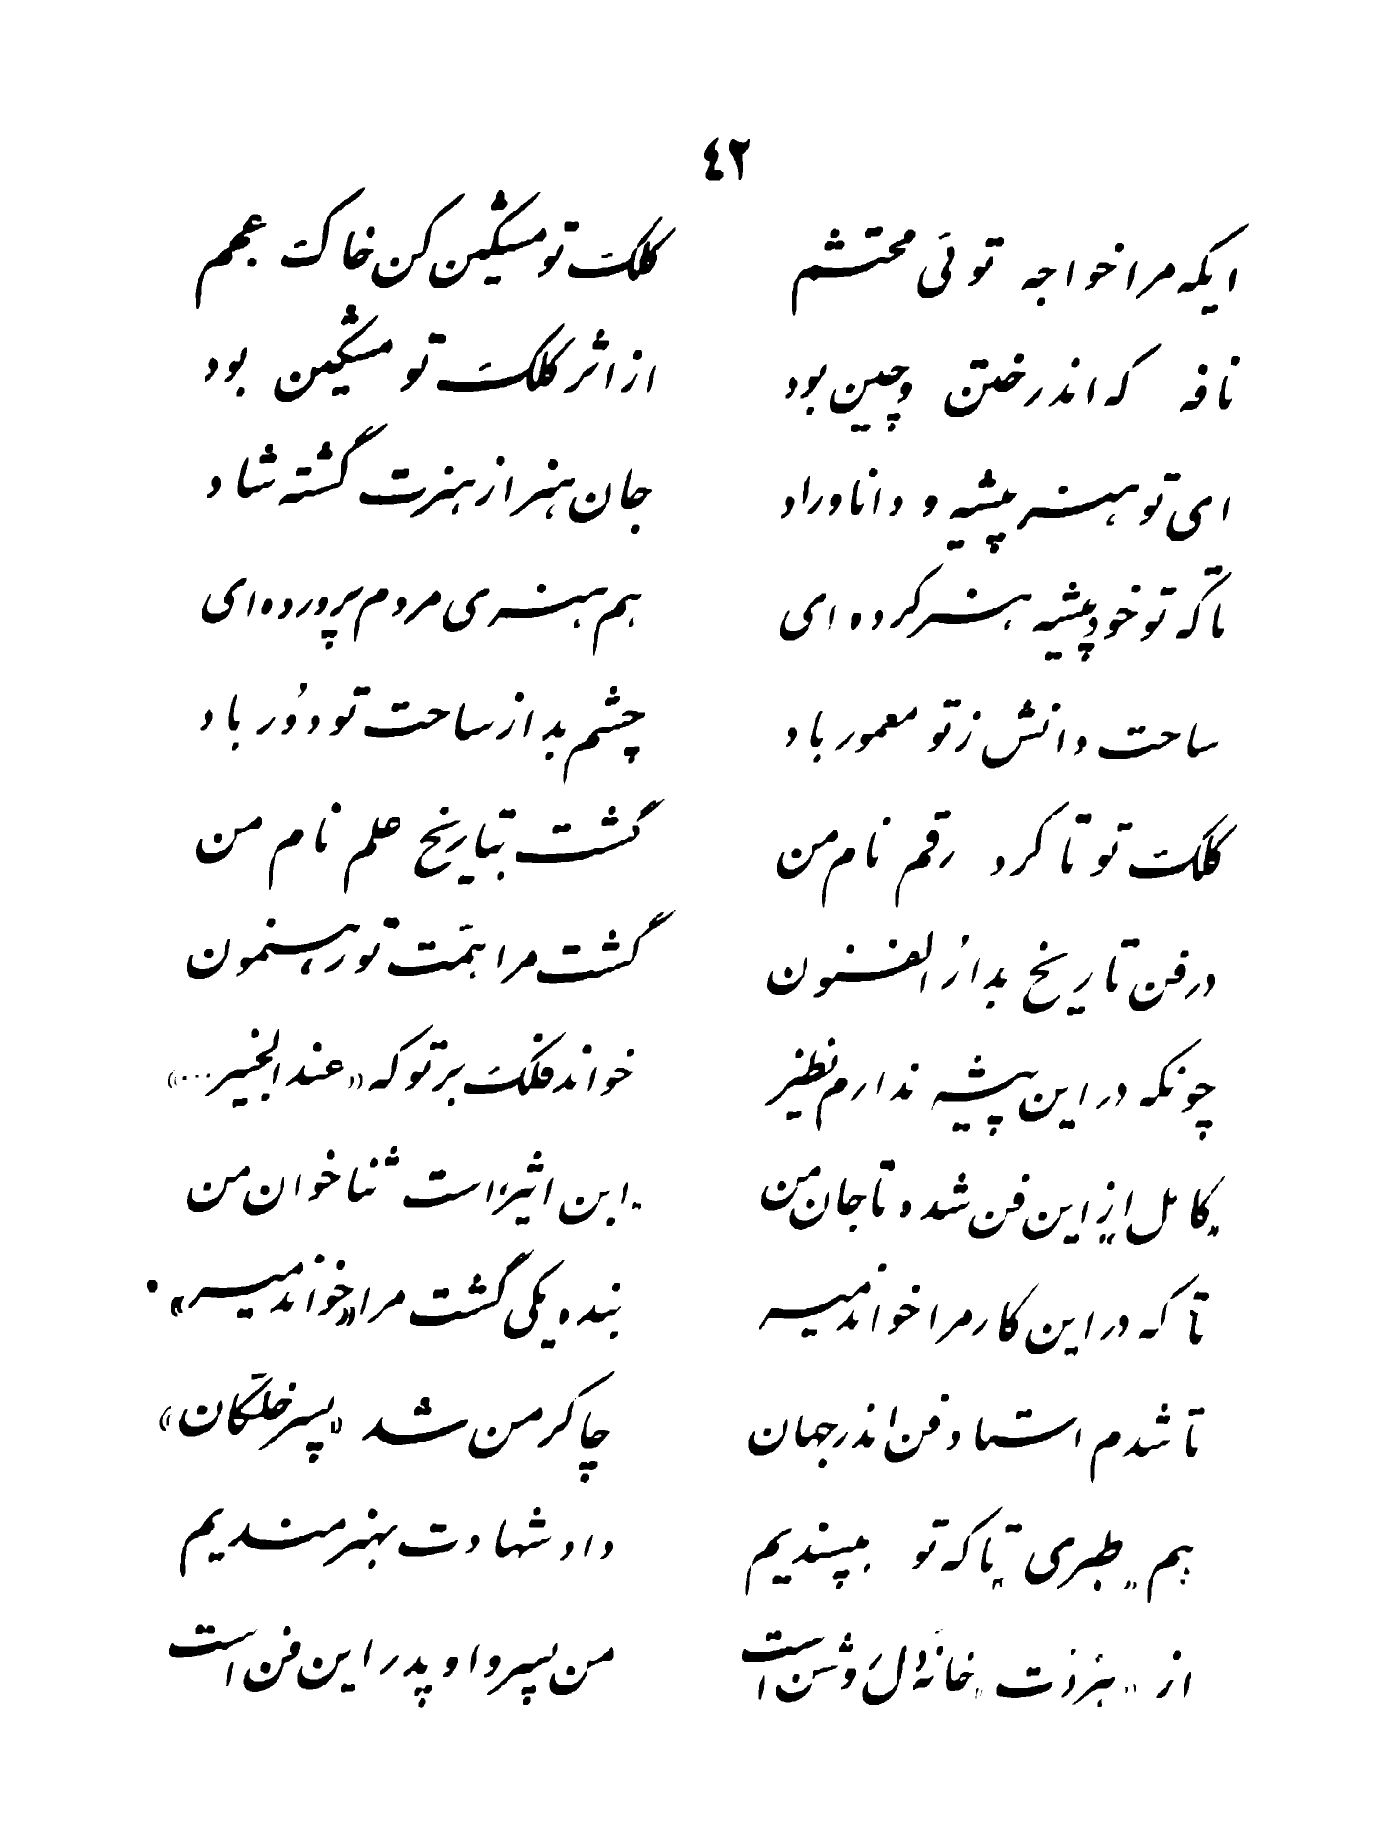 ٤٢
ایکه مرا خواجه توئی محتشم کلک تو مشکین کن خاک عجم
نافه که اندر ختن و چین بود از اثر کلک تو مشکین بود
ای تو هنر پیشه و دانا و راد جان هنر از هنرت گشته شاد
تا که تو خود پیشه هنر کرده ای هم هنری مردم پرورده ای
ساحت دانش ز تو معمور باد چشم بد از ساحت تو دور باد
کلک تو تا کرد رقم نام من گشت بتاریخ علم نام من
در فن تاریخ بدار الفنون گشت مرا همّت تو رهنمون
چونکه در این پیشه ندارم نظیر خواند فلک بر تو که «عند الخبیر...»
«کامل» از این فن شده تا جان من «ابن اثیر» است ثنا خوان من
تا که در این کار مرا خواند میر بنده یکی گشت مرا «خواندمیر»
تا شدم استاد فن اندر جهان چاکر من شد «پسر خلّکان»
هم «طبری» تا که تو بپسندیم داد شهادت بهنرمندیم
از «هنرت» خانهٔ دل روشن است من پسر و او پدر این فن است